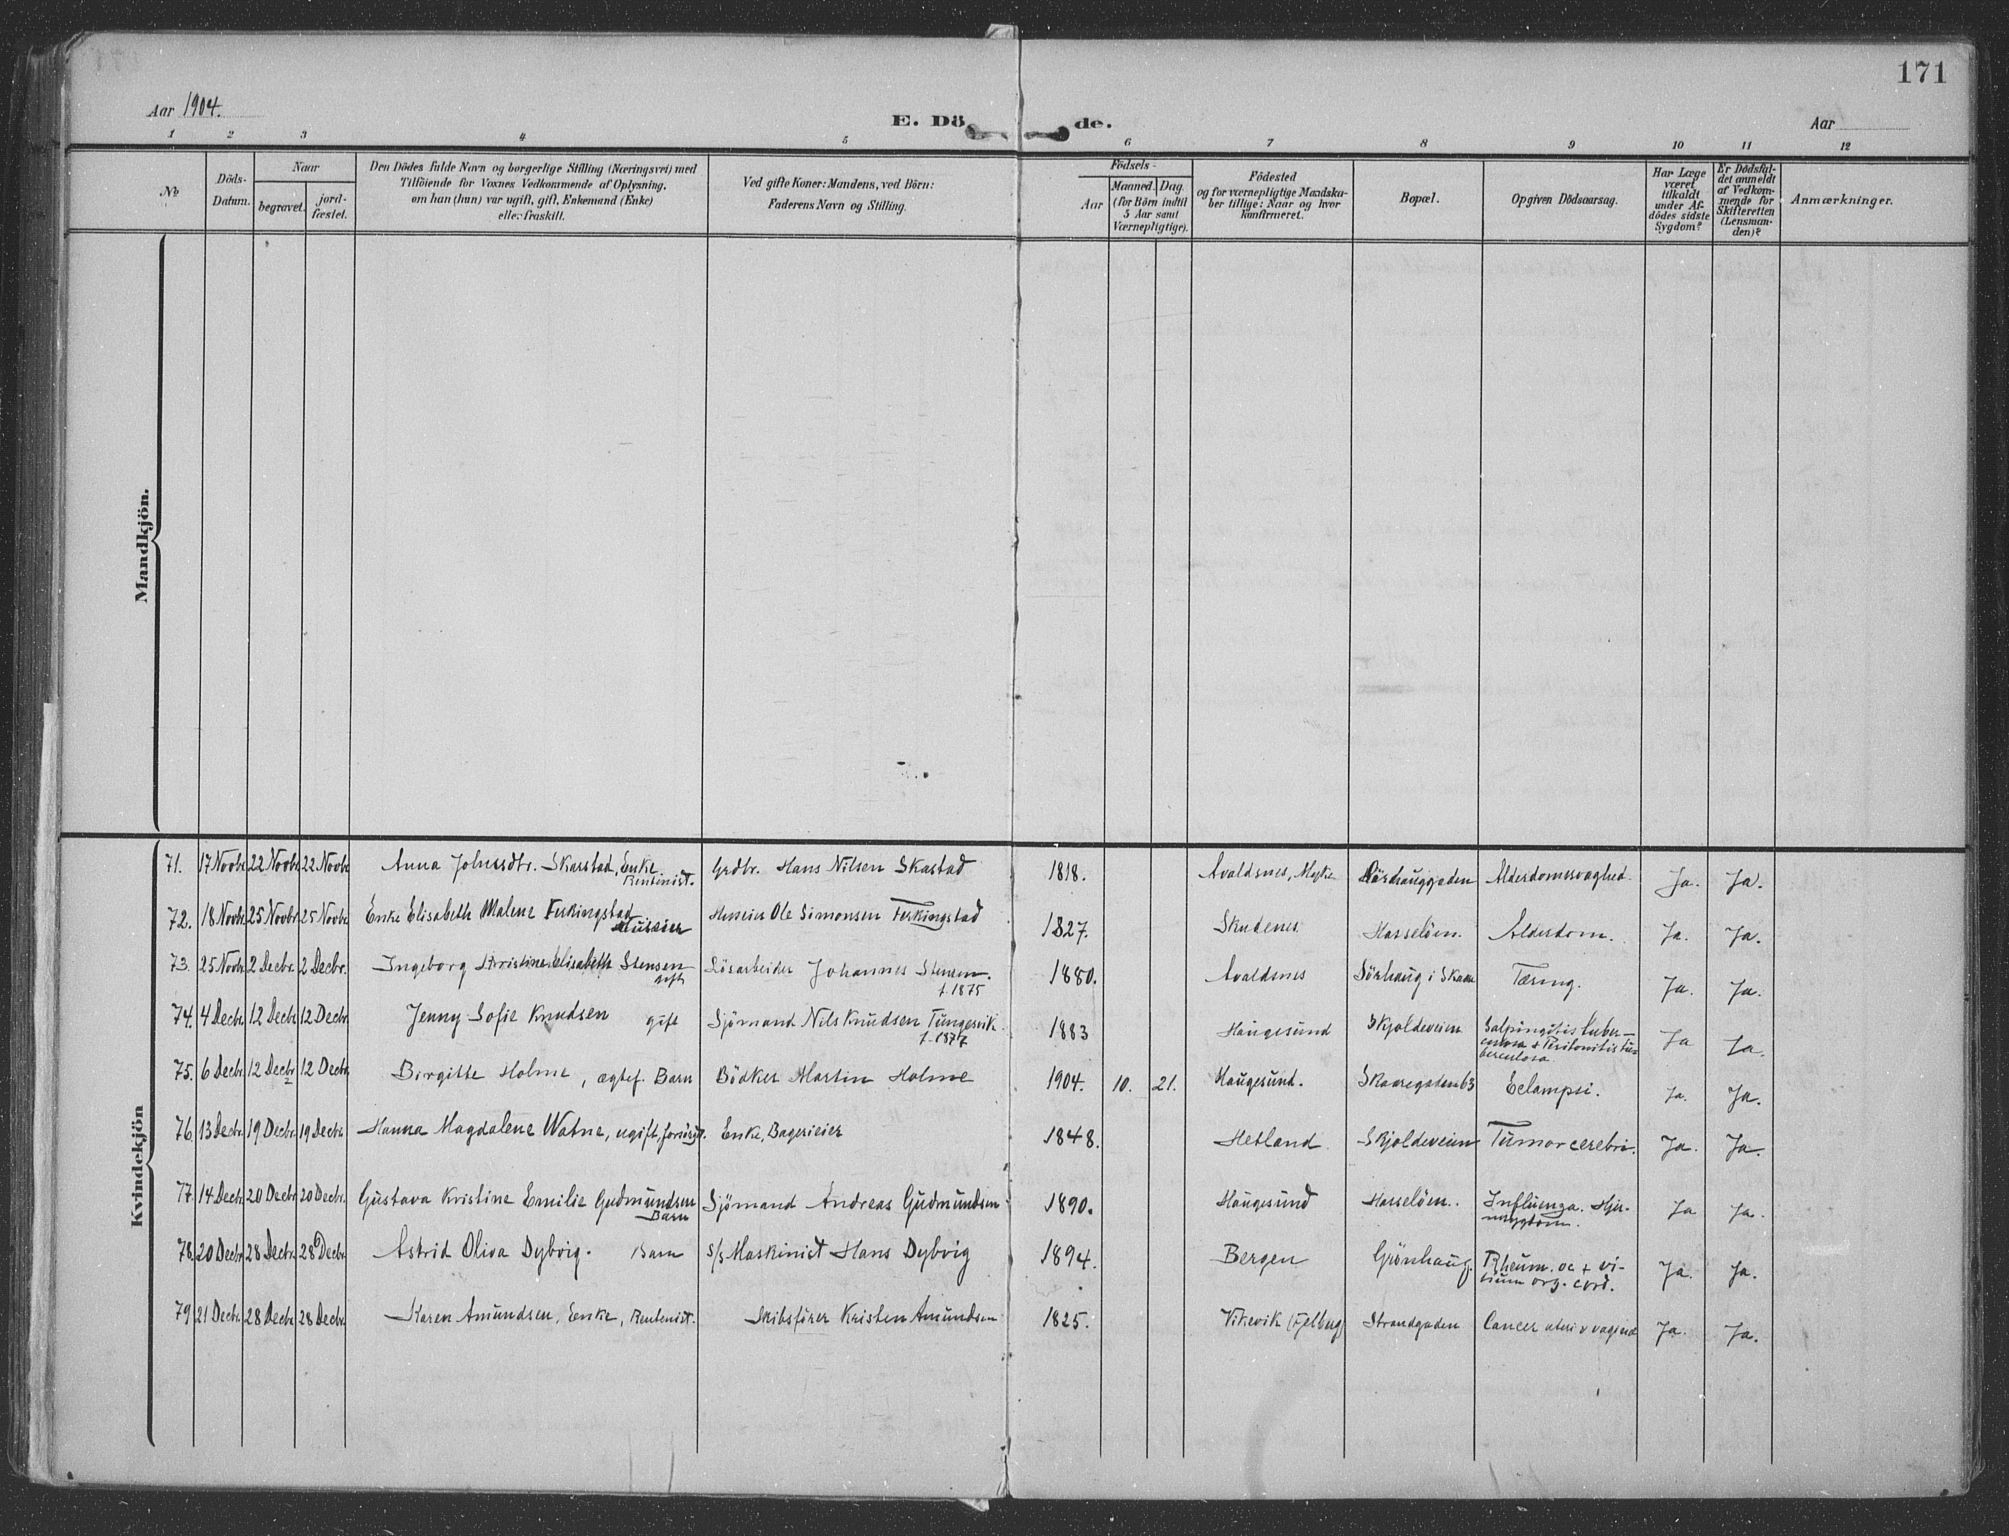 171
Aar 1904.
E. Dö de.
Aar
1 2 3 4 5 6 7 8 9 10 11 12
No
Döds-Datum.
Naar
begravet.
jord-fæstet.
Den Dödes fulde Navn og borgerlige Stilling (Næringsvei) med
Tilföiende for Voxnes Vedkommende af Oplysning.
om han (hun) var ugift, gift, Enkemand (Enke)
eller fraskilt.
Ved gifte Koner: Mandens, ved Börn:
Faderens Navn og Stilling.
Födsels-
Aar
Maaned. Dag.
(for Börn indtil
5 Aar samt
Værnepligtige).
Födested
og for værnepligtige Mandska-
ber tillige: Naar og hvor
konfirmeret.
Bopæl.
Opgiven Dödsaarsag.
Har Læge
været
tilkaldt
under Af-
dödes sidste
Sygdom?
Er Dödsfal-
det anmeldt
af Vedkom-
mende for
Skifteretten
(Lensman-
den)?
Anmærkninger.
Mandkjön.
Kvindekjön
71. 17 Novbr. 22 Novbr. 22 Novbr. Anna Johnsdtr. Skarstad, Enke Rentenist. Grdbr. Hans Nilsen Skastad 1818. Avaldsnes, Sörhauggaden Alderdomssvaghed. Ja. Ja.
72. 18 Novbr. 25 Novbr. 25 Novbr. Enke Elisabeth Malene Ferkingstad Huseier Huseier Ole Simonsen Ferkingstad 1827. Skudenes Hasselöen. Alderdom. Ja. Ja.
73. 25 Novbr. 2 Decbr. 2 Decbr. Ingeborg Kristine Elisabeth Stensen gift Lösarbeider Johannes Stensen. f. 1875 1880. Avaldsnes Sörhaug i Skaare Tæring. Ja. Ja.
74. 4 Decbr. 12 Decbr. 12 Decbr. Jenny Sofie Knudsen gift Sjömand Nils Knudsen Tungesvik. f. 1877 1883 Haugesund Skjoldeveien Salpingitis tuber-
culosa + Peritonitis tu-
berculosa Ja Ja.
75. 6 Decbr. 12 Decbr. 12 Decbr. Birgitte Holme, ægtef. Barn Bödker Martin Holme 1904. 10. 21. Haugesund. Skaaregaden 63 Eclampsi. Ja. Ja.
76. 13 Decbr. 19 Decbr. 19 Decbr. Hanna Magdalene Watne, ugift, forsörget. Enke, Bagerieier 1848. Hetland Skjoldeveien Tumor cerebri. Ja. Ja.
77. 14 Decbr. 20 Decbr. 20 Decbr. Gustava Kristine Emilie Gudmundsen Barn Sjömand Andreas Gudmundsen 1890. Haugesund Hasselöen. Influenza. Hjer-
nesygdom. Ja Ja.
78. 20 Decbr. 28 Decbr. 28 Decbr. Astrid Oliva Dybvig. Barn s/s Maskinist Hans Dybvig 1894. Bergen Grönhaug. Rheum. ac + vi-
tium org. cord. Ja. Ja.
79. 21 Decbr. 28 Decbr. 28 Decbr. Karen Amundsen, Enke, Rentenist. Skibsförer Kristen Amundsen 1825. Vikevik (Fjelberg) Strandgaden Cancer uteri & vaginæ Ja. Ja.